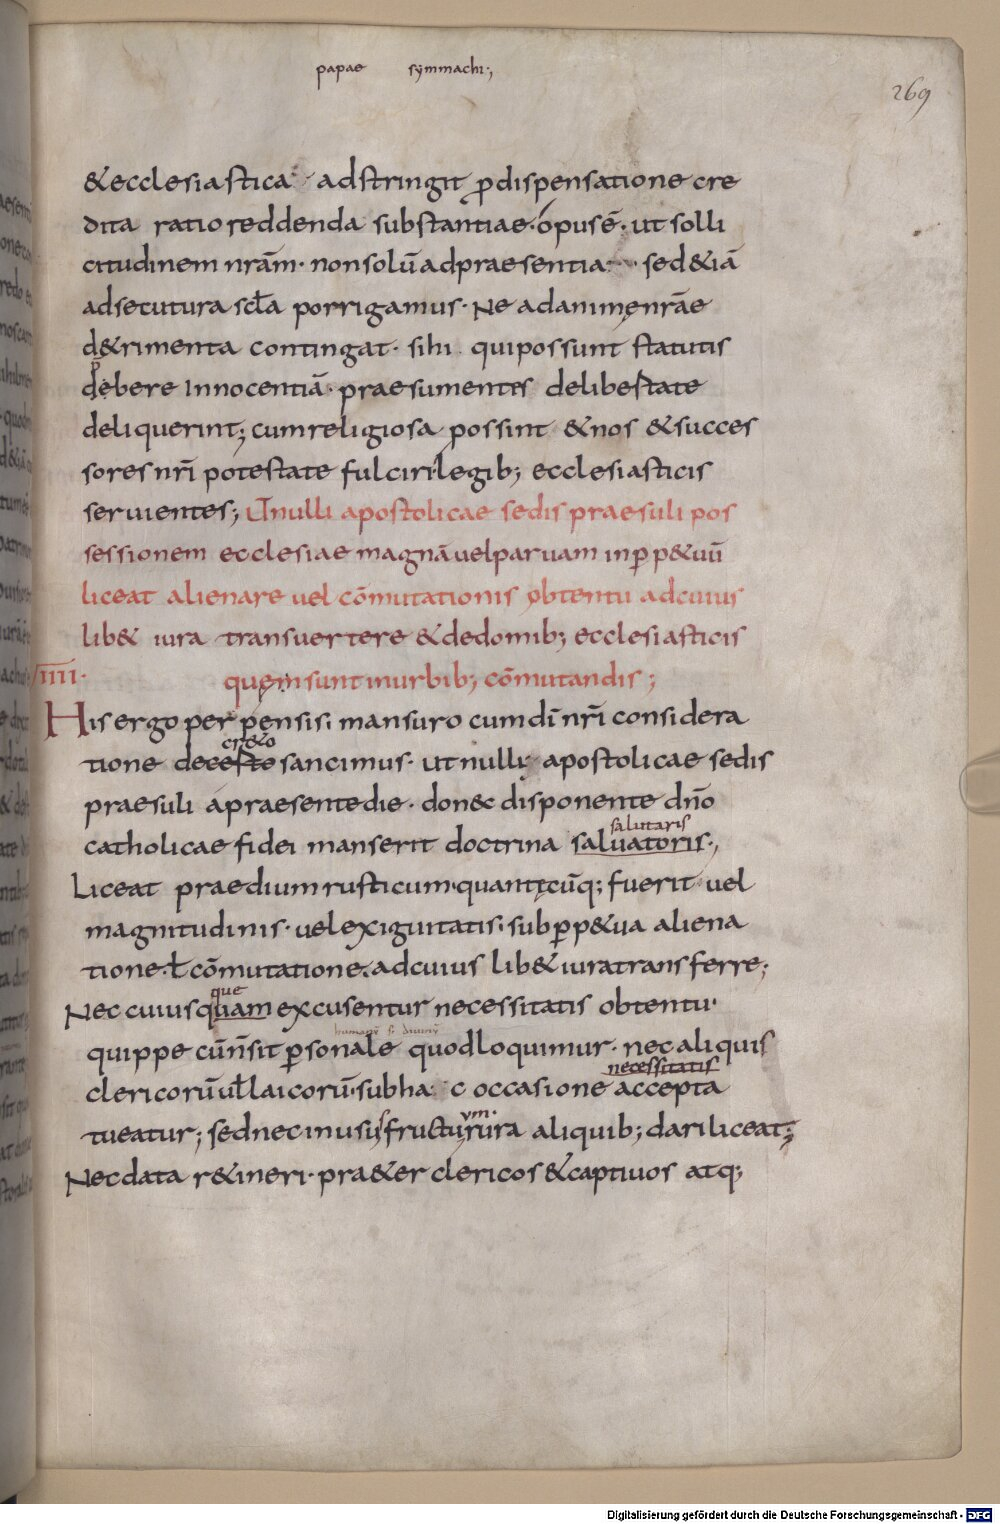 papae symmachi·,
269
&ecclesiastica · adstringit ꝓdispensatione cre
dita ratio reddenda substantiae· opus ē· ut solli
citudinem nrām· non solū ad praesentia · sed &iā
ad secutura scła porrigamus· Ne ad animę nrāe
d&rimenta contingat· si hi qui possunt statutis
debere Innocentiā· praesumentes delibestate
deliquerint; cum religiosa possint &nos &succes
sores nrī potestate fulciri legib; ecclesiasticis
seruientes; Ut nulli apostolicae sedis praesuli pos
sessionem ecclesiae magnā uel paruam in ꝑp&uū
liceat alienare uel cōmutationis obtentu ad cuius
lib& iura transuertere & de domib; ecclesiasticis
IIII·
quem sunt in urbib; cōmutandis;
His ergo perpensis· mansuro cum dī nrī considera
cr&o
tione decesto sancimus· ut nulli apostolicae sedis
praesuli apraesente die· donec disponente dno
salutaris
catholicae fidei manserit doctrina saluatoris·,
Liceat praedium rusticum· quantęcūq; fuerit uel
magnitudinis· uel exiguitatis· sub ꝑp&ua aliena
tione· ł cōmutatione· ad cuius lib& iura transferre;
que
Nec cuiusquam excusentur necessitatis obtentu·
humanū diuinū
quippe cūn sit ꝑsonale quod loquimur· nec aliquis
necessitatis
clericorū uł laicorū· sub ha c occasione accepta
um·
tueatur; sed nec in usufructu rura aliquib; dari liceat;
Nec data r&ineri· pra&er clericos & captiuos atq;
Digitalisierung gefördert durch die Deutsche Forschungsgemeinschaft - DFG